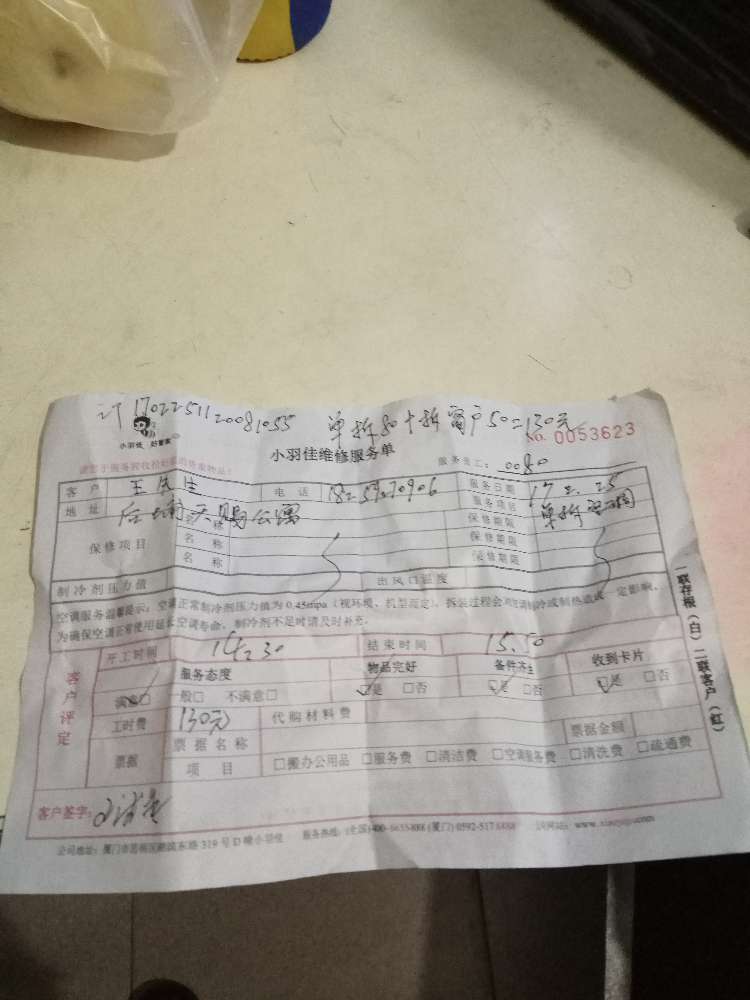 订 1702251120081055 单拆80+拆窗户50=130元
小羽佳 好管家
小羽佳维修服务单 No. 0053623
服务员工: 0080
客户 电话 服务日期 17 2. 25
地址 后埔 天赐公寓 服务项目 单拆
保修项目 名称 保修期限
名称 保修期限
名称 保修期限
制冷剂压力值 出风口温度
空调服务温馨提示:空调正常制冷剂压力值为0.45mpa(视环境、机型而定),拆装过程会对制冷或制热造成一定影响,
为确保空调正常使用延长空调寿命,制冷剂不足时请及时补充。
开工时间 14:30 结束时间 15.50
客户评定
服务态度 物品完好 备件齐全 收到卡片
满意□ 一般□ 不满意□ □是 □否 □是 □否 □是 □否
工时费 130元 代购材料费
票据 票据名称 票据金额
项目 □搬办公用品 □服务费 □清洁费 □空调服务费 □清洗费 □疏通费
客户签字:
一联存根(白)二联客户(红)